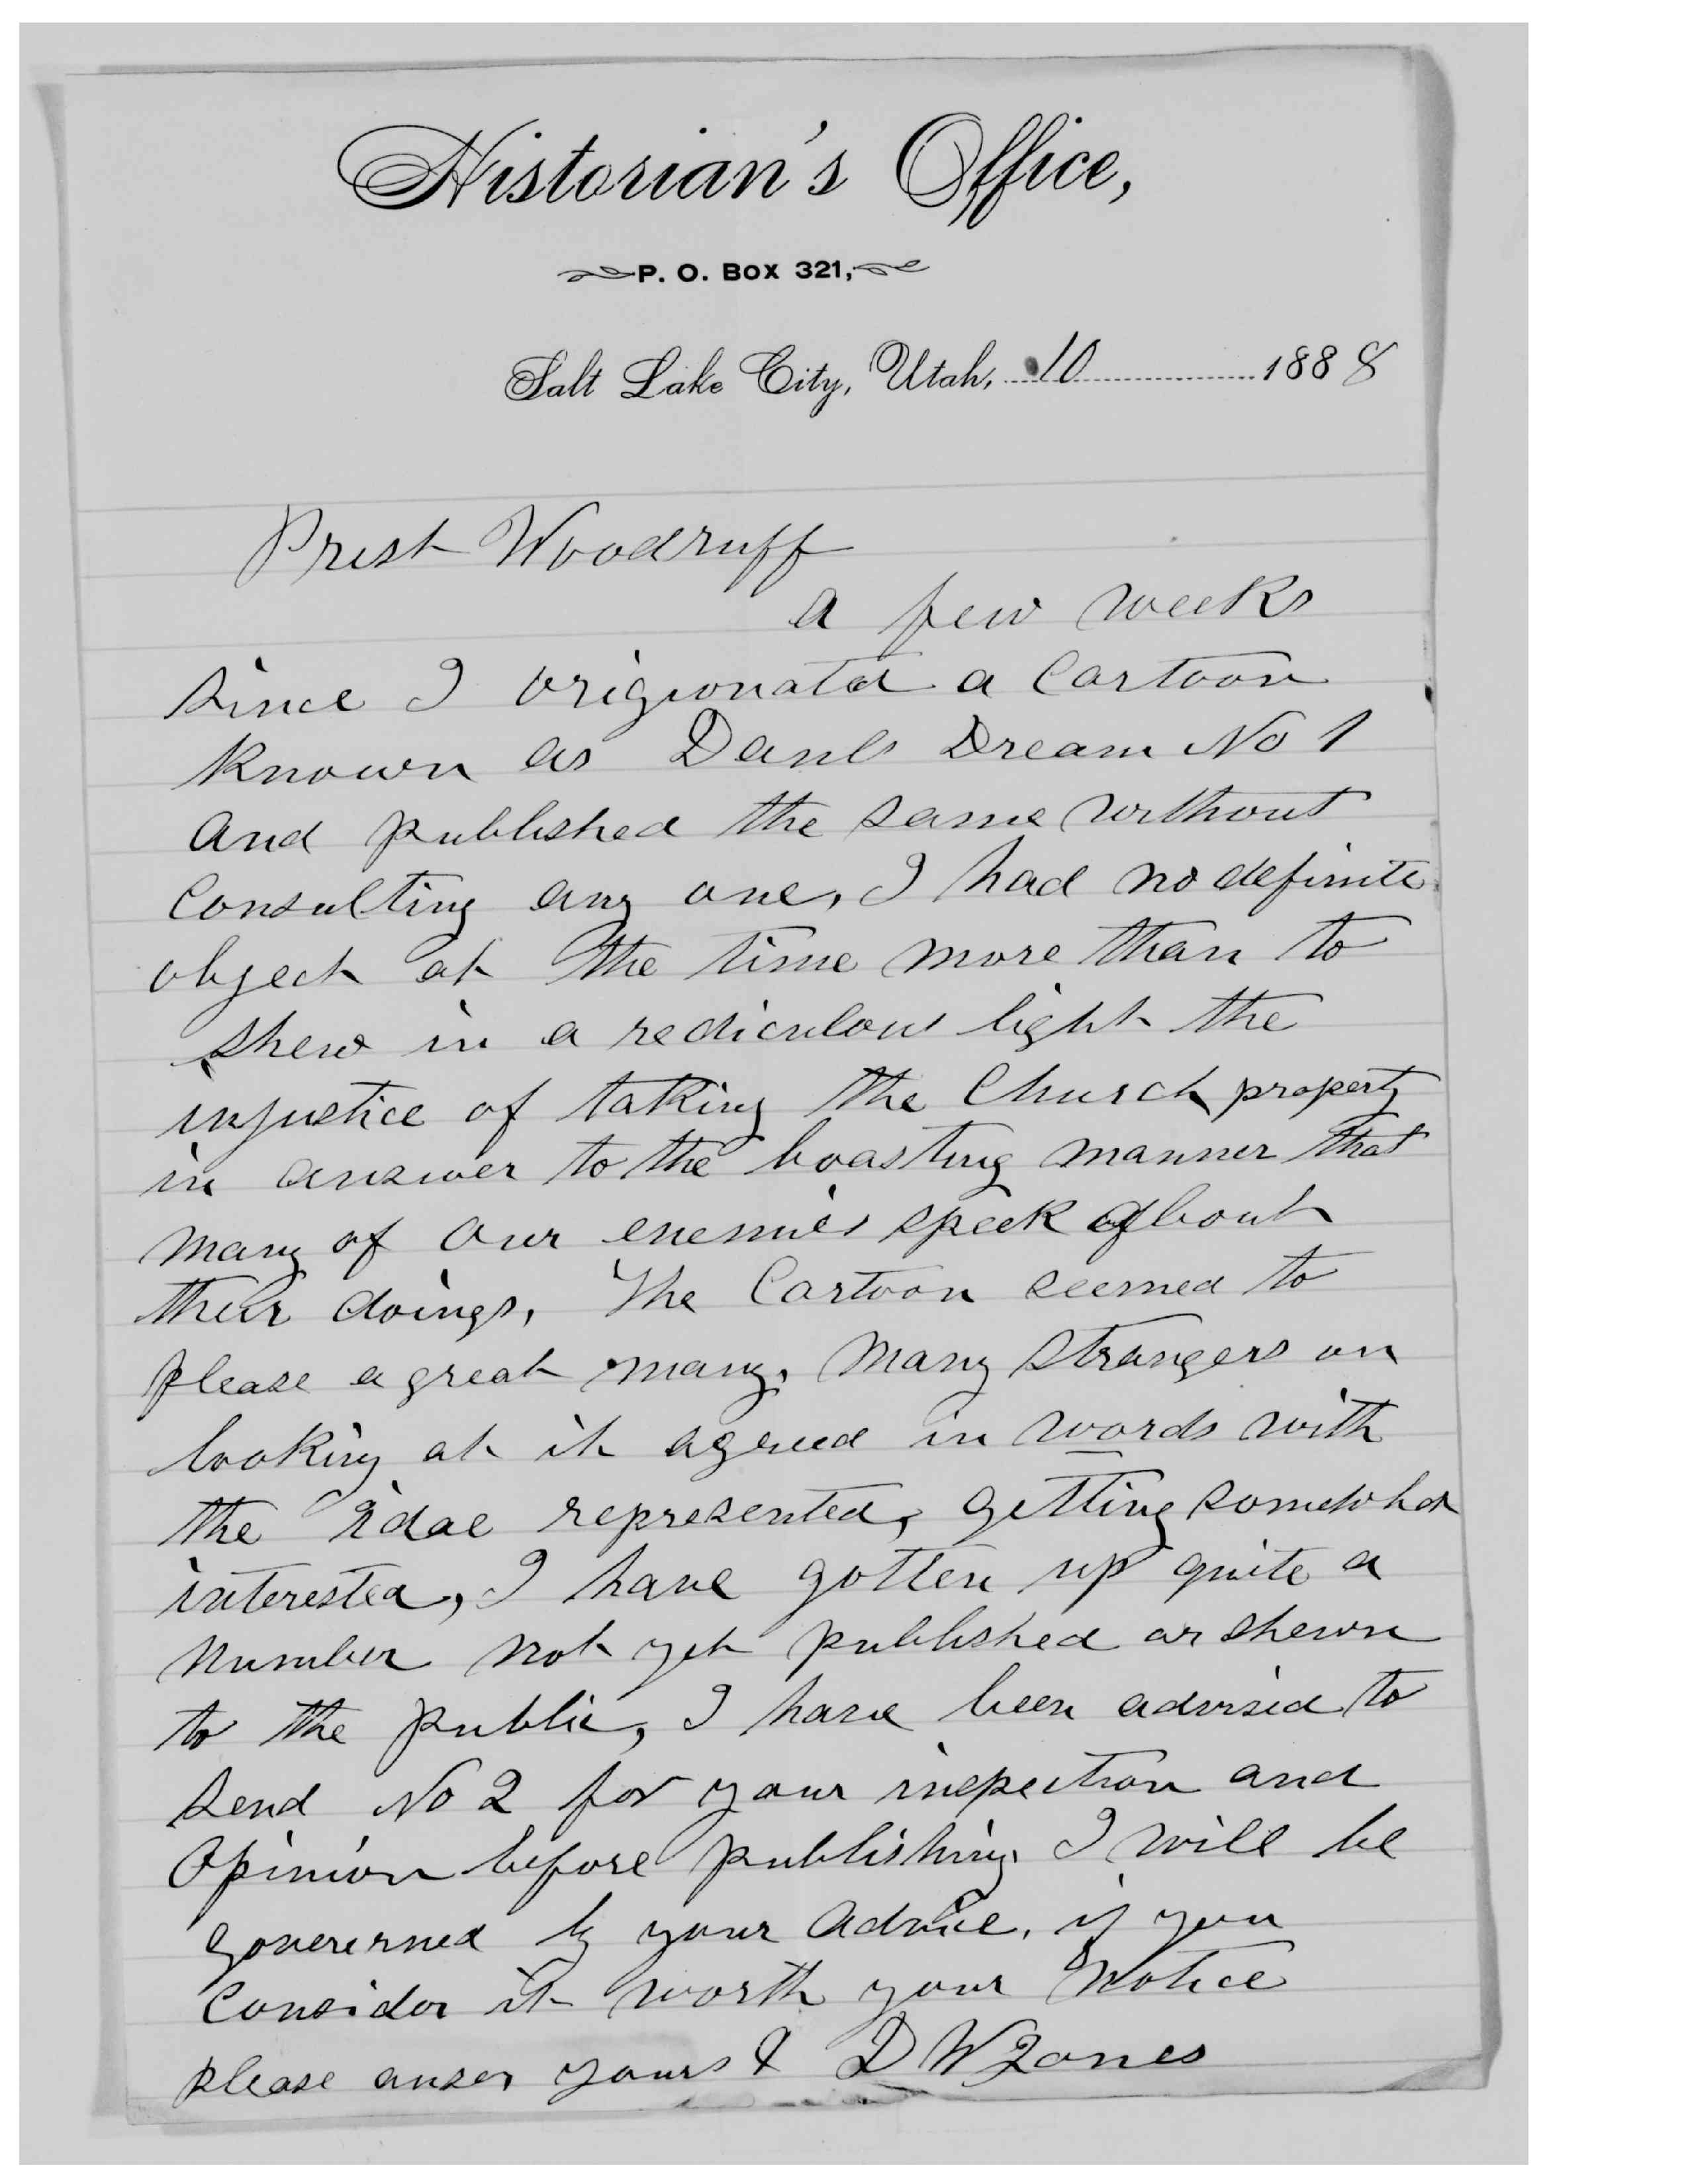 Historian's Office,
P. O. BOX 321,
Salt Lake City, Utah, 10 1888
Prest Woodruff
a few weeks
since I origionated a Cartoon
known as Danls Dream No 1
and published the same without
Consulting any one, I had no definite
object at the time more than to
shew in a rediculous light the
injustice of taking the Church property
in answer to the boasting manner that
many of our enemies speek about
their doings, The Cartoon seemed to
please a great many, Many strangers on
looking at it agreed in words with
the idae represented, getting somewhat
interested, I have gotten up quite a
number not yet published or shewn
to the public, I have been advised to
send No 2 for your inspection and
Opinion before publishing. I will be
govererned by your advice, if you
Consider it worth your notice
please anser yours & D W Jones